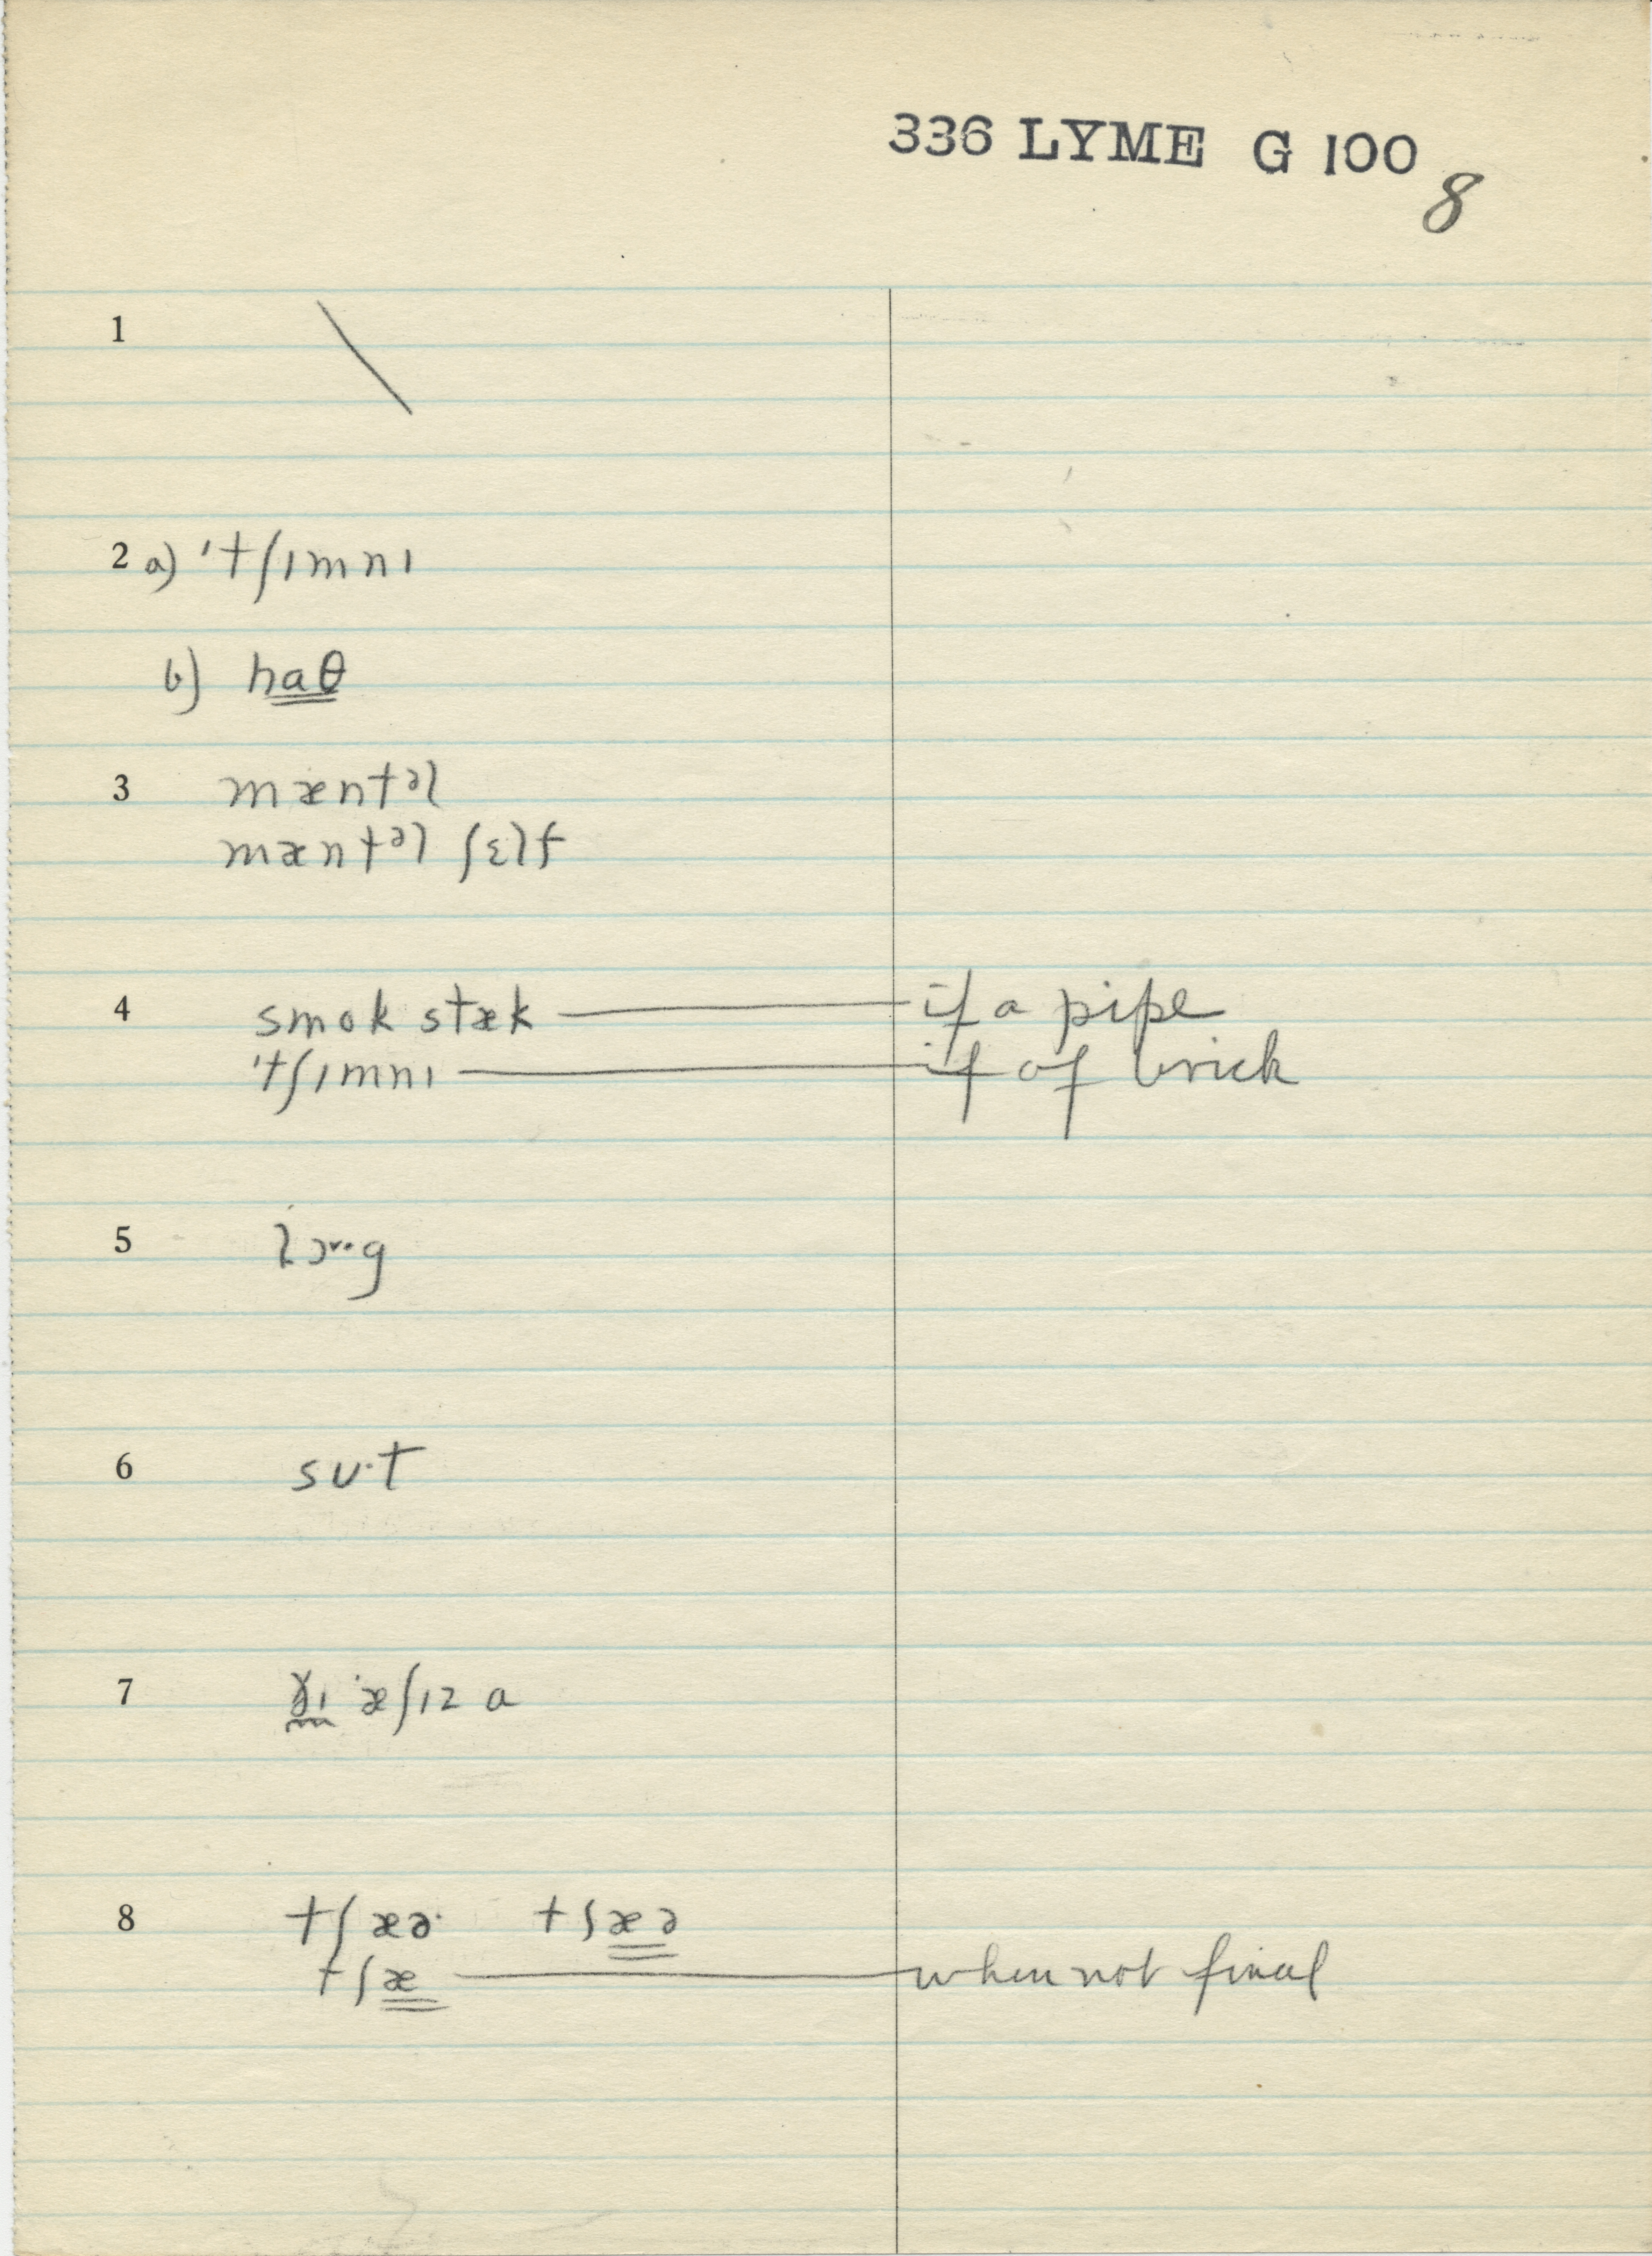 336 LYME G 100
8
1 \
2 a) 'tʃɪmnɪ
b) haθ
3 mæntᵊl
mæntᵊl ʃɛlf
4 smok stæk — if a pipe
'tʃɪmnɪ — if of brick
5 lɔ˞··g
6 sʊ·t
7 ðɪ 'æʃɪz a
8 tʃæə· tʃæə
tʃæ — when not final